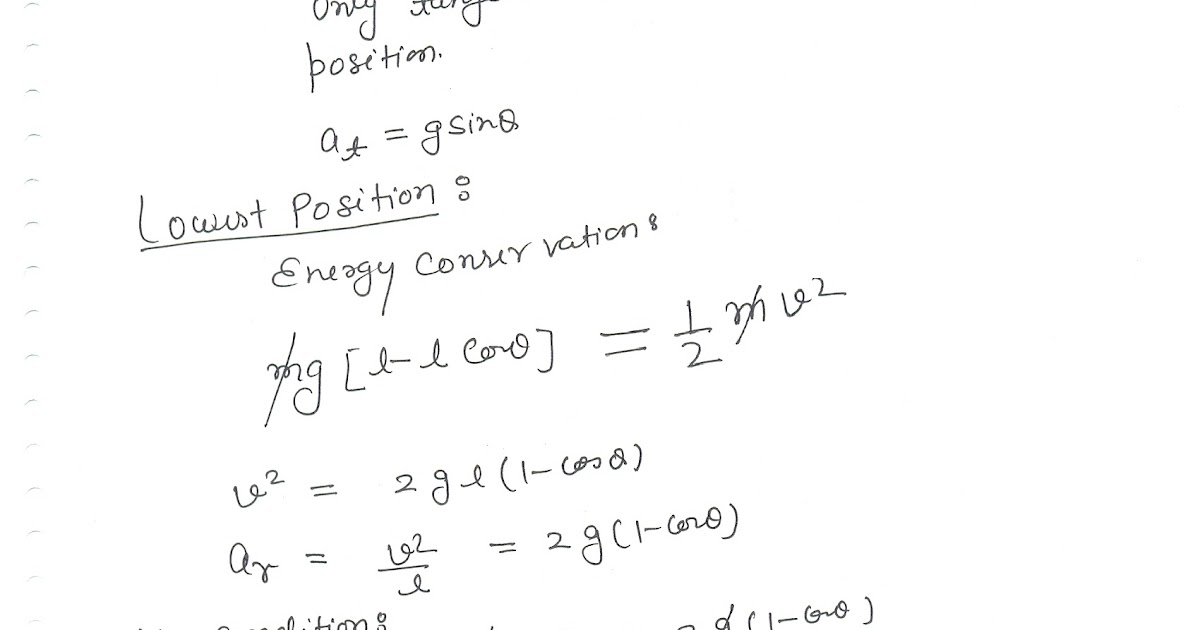 Only
position.
a_t = g sinθ
Lowest Position :
Energy Conservation :
mg [l - l cosθ] = 1/2 m v²
v² = 2gl (1 - cosθ)
a_r = v²/l = 2g (1 - cosθ)
(1 - cosθ)